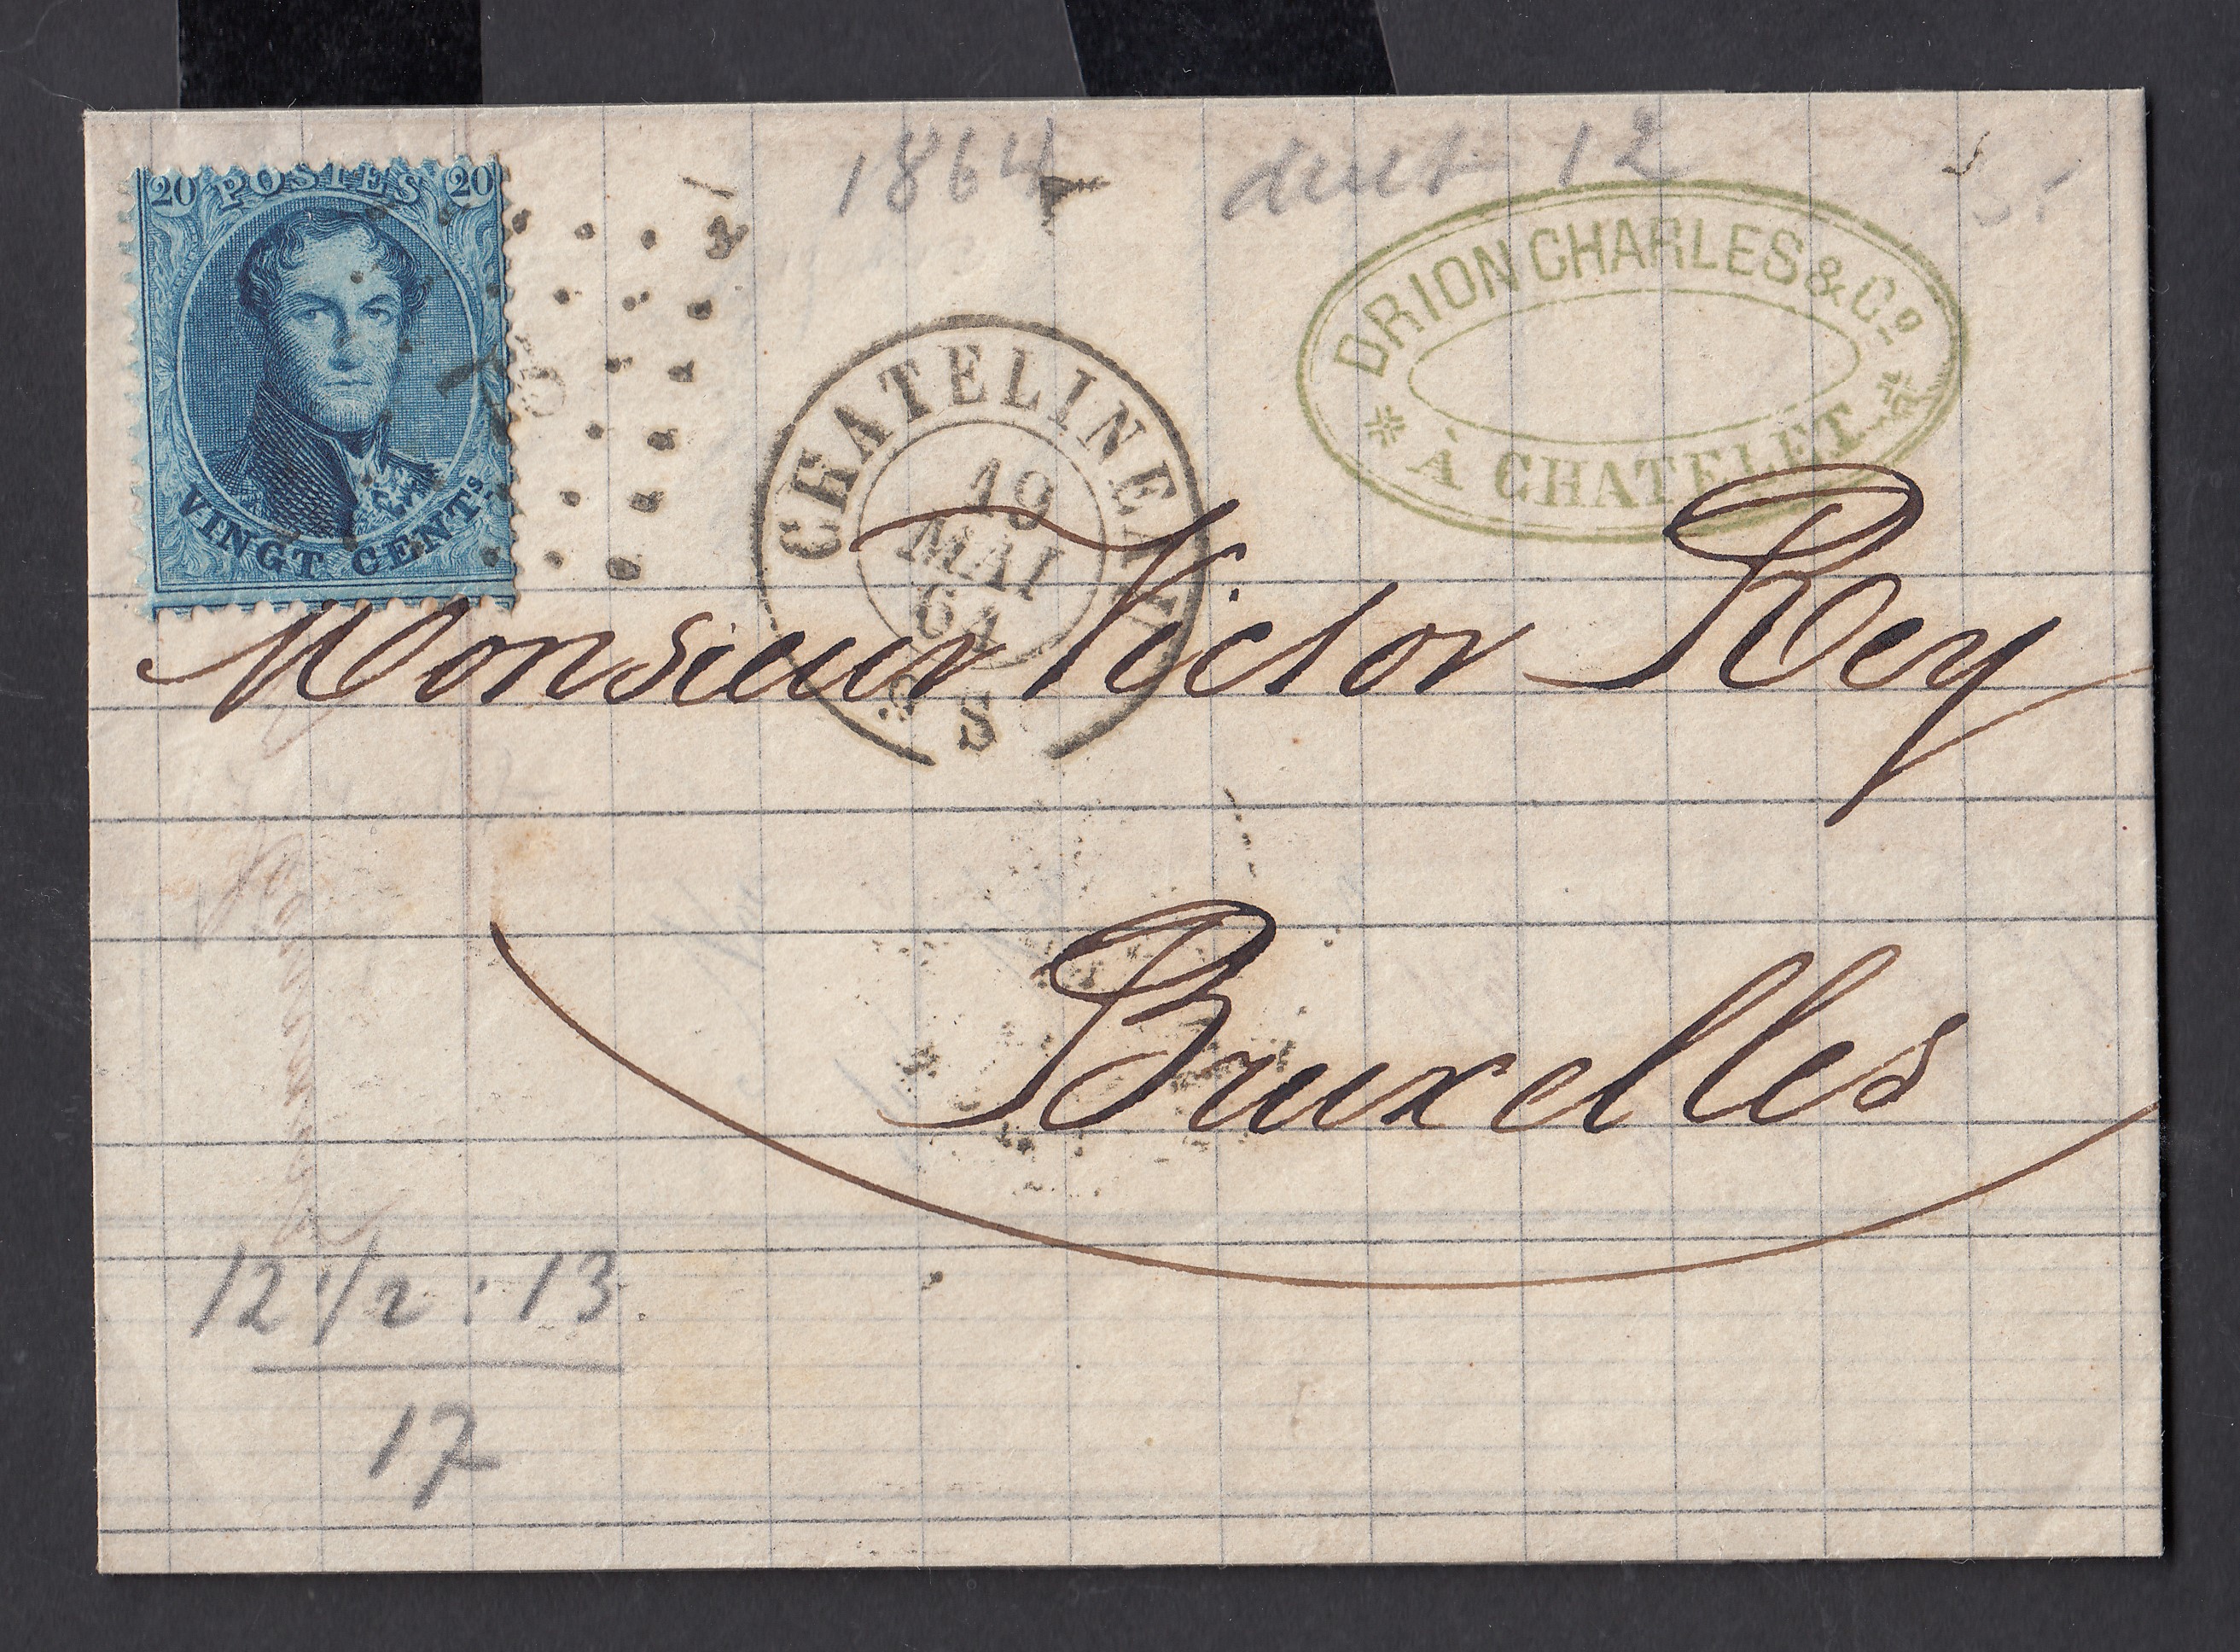 1864 dent 12
20 POSTES 20
VINGT CENTS
DRION CHARLES & Co.
À CHATELET
CHATELINEAU
19
MAI
64
S
Monsieur Victor Rey
Bruxelles
12 1/2 : 13
17